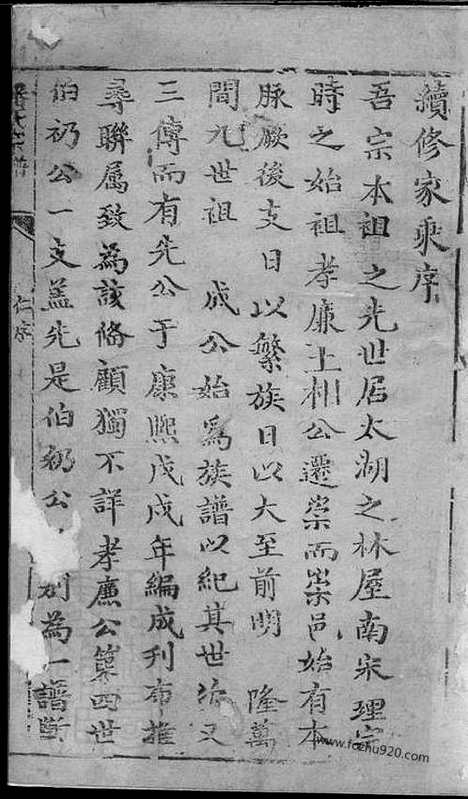 續修家乘序
吾宗本祖之先世居太湖之林屋南宋理宗
時之始祖孝廉上相公遷崇而崇邑始有本
脉厥後支日以繁族日以大至前明 隆萬
間九世祖 成公始為族譜以紀其世次又
三傳而有先公于康熙戊戌年編成刊布推
尋聯属致為該俻顧獨不詳孝廉公第四世
伯礽公一支盖先是伯礽公 别為一譜斷
www.fozhu920.com